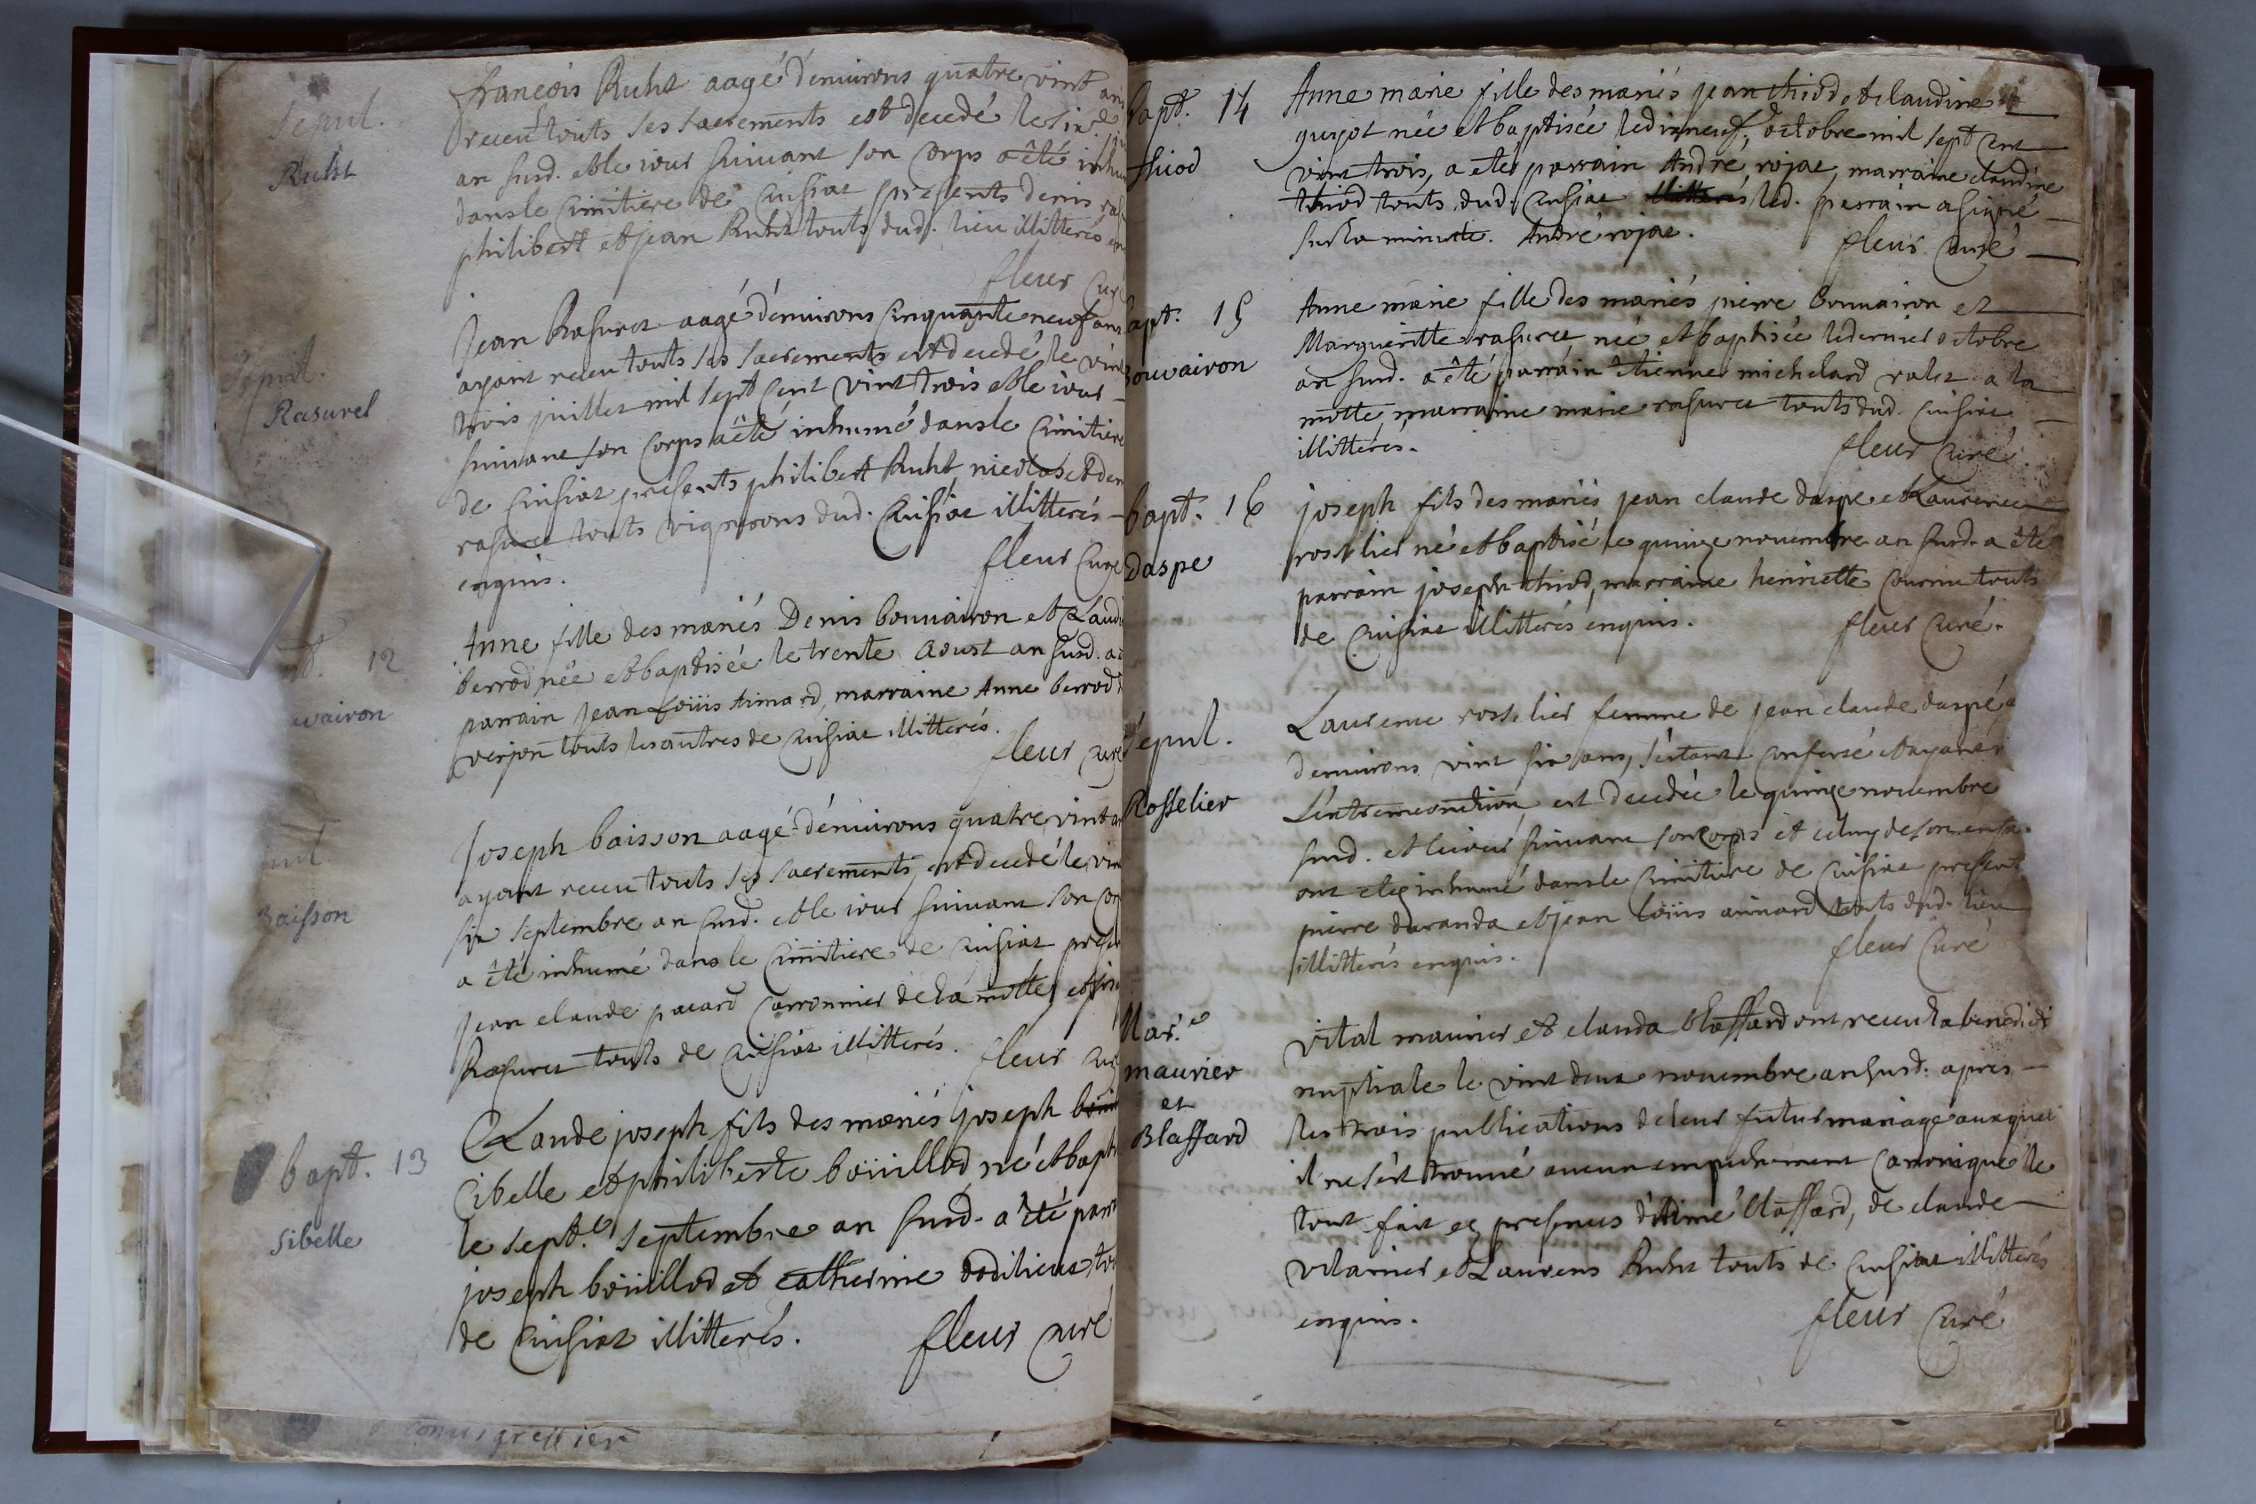 Sepul.
Ruht
francois Ruht aagé d'enuirons quatre vint ans
receu touts ses sacrements est decedé le
an susd. et le iour suiuant son corps a été inhu
dans le cimitiere de cuisiat presents denis
philibert et jean Ruht touts dud. lieu illitterés
fleur cur
Sepul.
Rasurel
Jean Rasurel aagé d'enuirons cinquante neuf ans
ayant receu touts ses sacrements est decedé le vint
trois juillet mil sept cent vint trois et le iour
suiuant son corps a été inhumé dans le cimitiere
de cuisiat présents philibert Ruht, nicolas et den
rasurel touts vignerons dud. cuisiat illitterés
enquis.
fleur curé
t. 12
uvairon
Anne fille des mariés Denis bouuairon et Claudi
berrod née et baptisée le trente Aoust an susd. a
parrain jean Loüis aimard, marraine Anne berrod
verjon touts les autres de cuisiat illitterés.
fleur curé
pul.
Baisson
Joseph baisson aagé d'enuirons quatre vint an
ayant receu touts ses sacrements, est decedé le vin
six septembre an susd. et le iour suiuant son cor
a été inhumé dans le cimitiere de cuisiat prese
jean claude pacard carronnier de la motte, et
Rasurel touts de cuisiat illitterés.
fleur cur
bapt. 13
Sibelle
Claude joseph fils des mariés joseph
Cibelle et philiberte boüillod né et bapti
le sept.e septembre an susd. a été parr
joseph boüillod et catherine to
de cuisiat illitterés.
fleur curé
greffier
bapt. 14
thiod
Anne marie fille des mariés jean thiod et claudine
guyot née et baptisée le dixneuf octobre mil sept cent
vint trois, a etes parrain André rojat, marraine claudine
thiod touts dud. cuisiat illitterés led. parrain a signé
sur la minute. André rojat.
fleur curé
bapt. 15
Bouvairon
Anne marie fille des mariés pierre bouuairon et
Margueritte rasurel née et baptisée le dernier octobre
an susd. a été parrain étienne michelard valet a la
motte, marraine marie rasurel touts dud. cuisiat
illitterés.
fleur curé
bapt. 16
Daspe
joseph fils des mariés jean claude daspe et Laurence
rosselier né et baptisé le quinze nouembre an susd. a été
parrain joseph thiod, marraine henriette touts
de cuisiat illitterés enquis.
fleur curé.
Sépul.
Rosselier
Laurence rosselier femme de jean claude daspé a
d'enuirons vint six ans, s'etant confessé et ayant
L'extremeonction, est decedée le quinze nouembre
susd. et le iour suiuant son corps et celuy de son enfa
ont etes inhumé dans le cimitiere de cuisiat present
pierre duranda et jean loüis aimard touts dud. lieu
illitterés enquis.
fleur curé
Mar.e
maurier
et
Blaffard
vital maurier et clauda blaffard ont receu la benedicti
nuptiale le vint deux nouembre an susd. apres
les trois publications de leur futur mariage auxquel
il ne s'est trouué aucun empechement canonique le
tout fait ez presences d'étiné blaffard, de claude
vilarnier et Laurens Ruht touts de cuisiat illitterés
enquis.
fleur curé